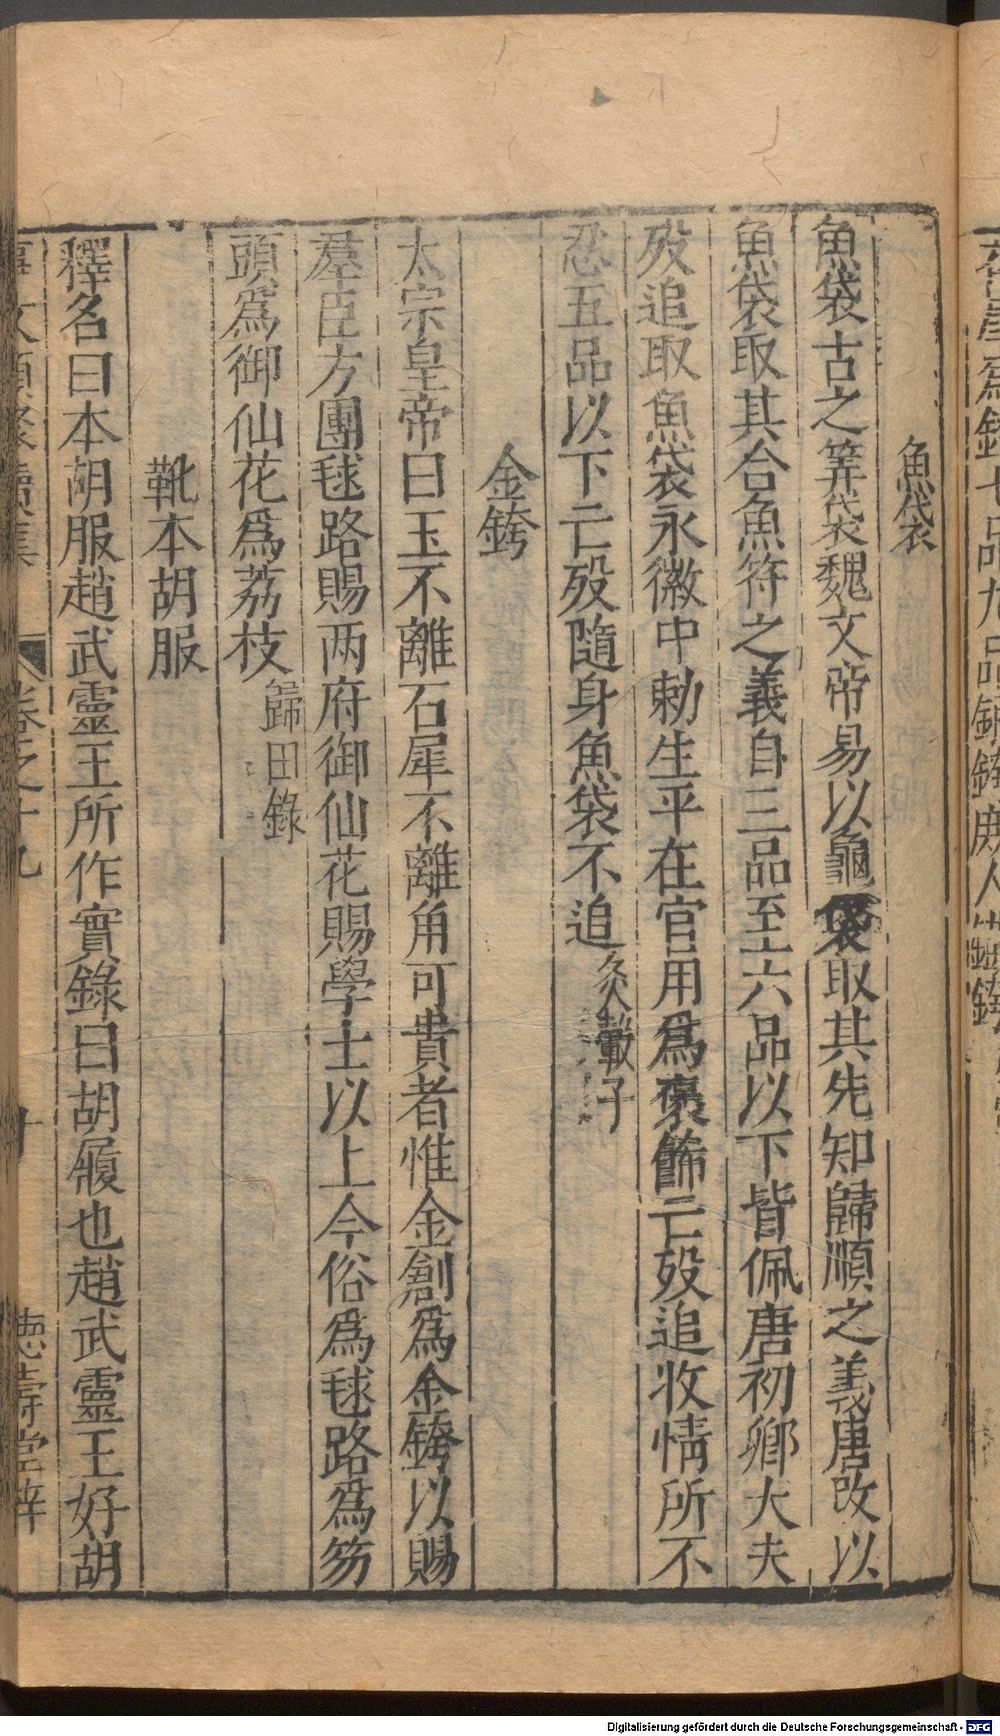 魚袋
魚袋古之筭袋魏文帝易以龜袋取其先知歸順之義唐改以
魚袋取其合魚符之義自三品至六品以下皆佩唐初卿大夫
歿追取魚袋永徽中勅生平在官用爲褒飾亡歿追收情所不
忍五品以下亡歿隨身魚袋不追炙轂子
金銙
太宗皇帝曰玉不離石犀不離角可貴者惟金創爲金銙以賜
羣臣方團毬路賜两府御仙花賜學士以上今俗爲毬路爲笏
頭爲御仙花爲荔枝歸田錄
靴本胡服
釋名曰本胡服趙武靈王所作實錄曰胡履也趙武靈王好胡
事文類聚續集 卷之十九 十 德壽堂梓
Digitalisierung gefördert durch die Deutsche Forschungsgemeinschaft - DFG